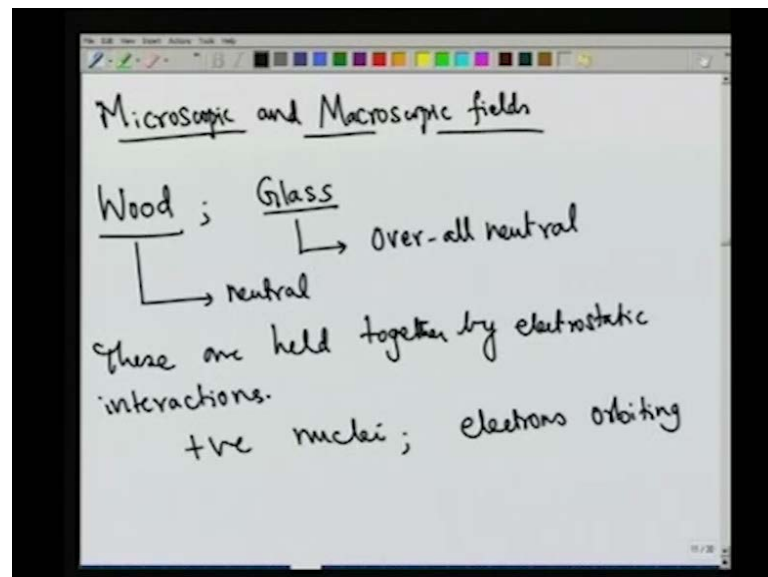 File Edit View Insert Actions Tools Help
Microscopic and Macroscopic fields
Wood ; Glass
Over-all neutral
neutral
These are held together by electrostatic
interactions.
+ve nuclei ; electrons orbiting